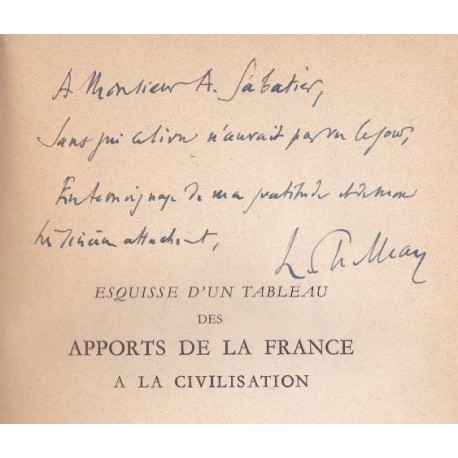 A Monsieur A. Sabatier,
Sans qui ce livre n'aurait pas vu le jour,
En témoignage de ma gratitude et de mon
très sincère attachement,
L.-Ph. May
ESQUISSE D'UN TABLEAU
DES
APPORTS DE LA FRANCE
A LA CIVILISATION